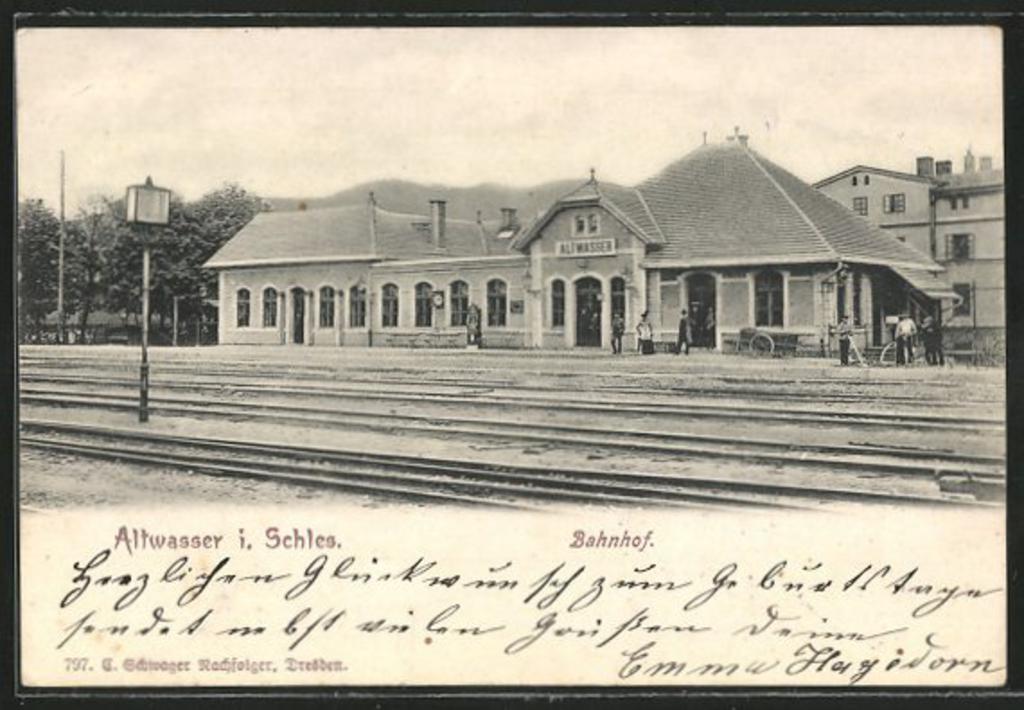 ALTWASSER
Altwasser i. Schles.
Bahnhof.
Herzlichen Glückwunsch zum Geburtstage
sendet nebst vielen Grüßen Deine
Emma Hagedorn
797. C. Schwager Nachfolger, Dresden.